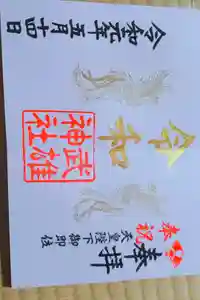 奉祝
天皇陛下御即位
奉拝
令和
武雄
神社
令和元年五月十四日